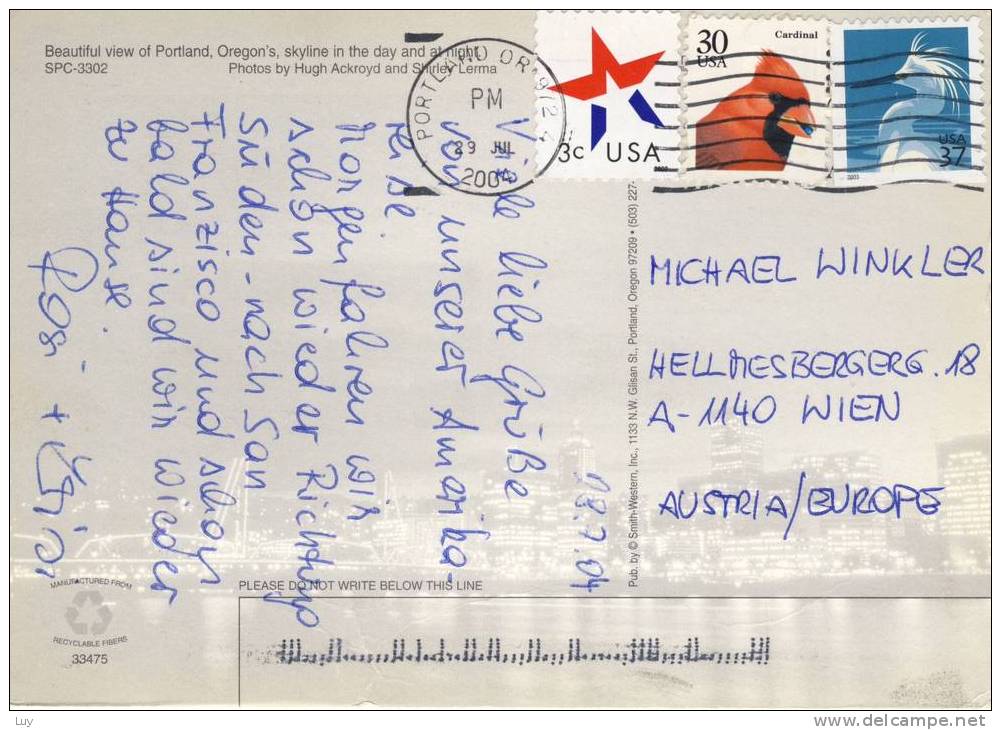 Beautiful view of Portland, Oregon's, skyline in the day and at night.
SPC-3302
Photos by Hugh Ackroyd and Shirley Lerma
PORTLAND OR 972 4
PM
29 JUL
2004
3c USA
2002
30
USA
Cardinal
USA
37
2003
28.7.04
Viele liebe Grüße
von unserer Amerika-
reise.
Morgen fahren wir
schon wieder Richtung
Süden - nach San
Franzisco und schon
bald sind wir wieder
zu Hause.
Rosi +
MICHAEL WINKLER
HELLMESBERGERG. 18
A-1140 WIEN
AUSTRIA/EUROPE
Pub. by © Smith-Western, Inc., 1133 N.W. Glisan St., Portland, Oregon 97209 • (503) 227-
PLEASE DO NOT WRITE BELOW THIS LINE
MANUFACTURED FROM
RECYCLABLE FIBERS
33475
Luy
www.delcampe.net